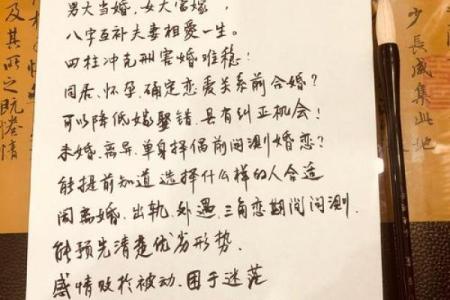 男大当婚，女大当嫁，
八字互补夫妻相爱一生。
四柱冲克刑害婚难稳！
同居、怀孕、确定恋爱关系前合婚？
可以降低嫁娶错，具有纠正机会！
未婚、离异、单身择偶前问测婚恋？
能提前知道选择什么样的人合适
闹离婚、出轨、外遇、三角恋期间问测，
能预先清楚优劣形势。
感情败于被动，困于迷茫
少長咸集此地
及其所之既惓情